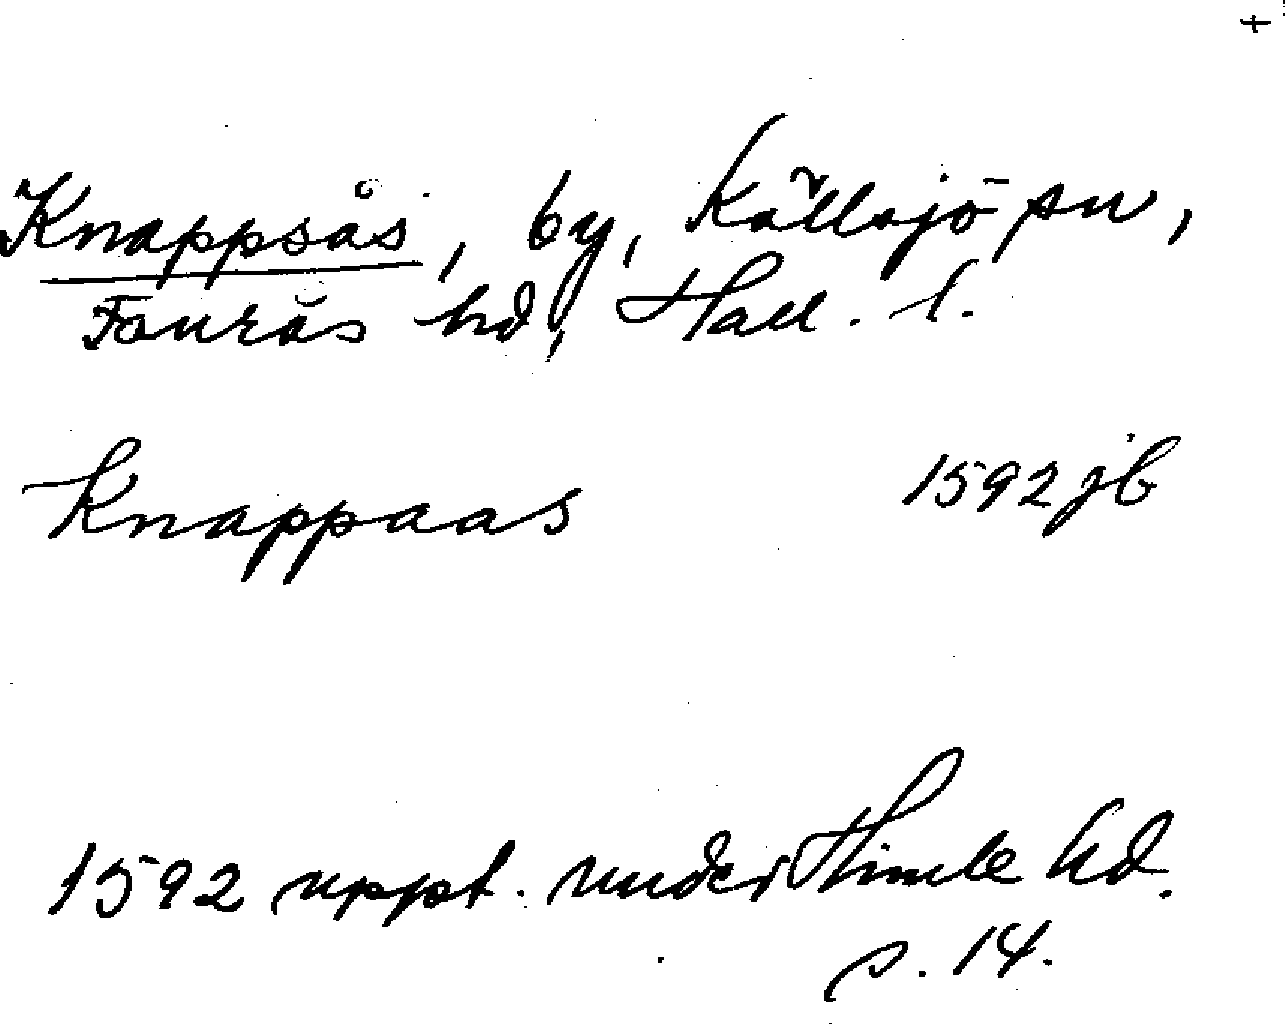 Knappsås, by, Källsjö sn,
Faurås hd, Hall. l.
Knappaas 1592 jb
1592 uppt. under Himle hd.
s. 14.